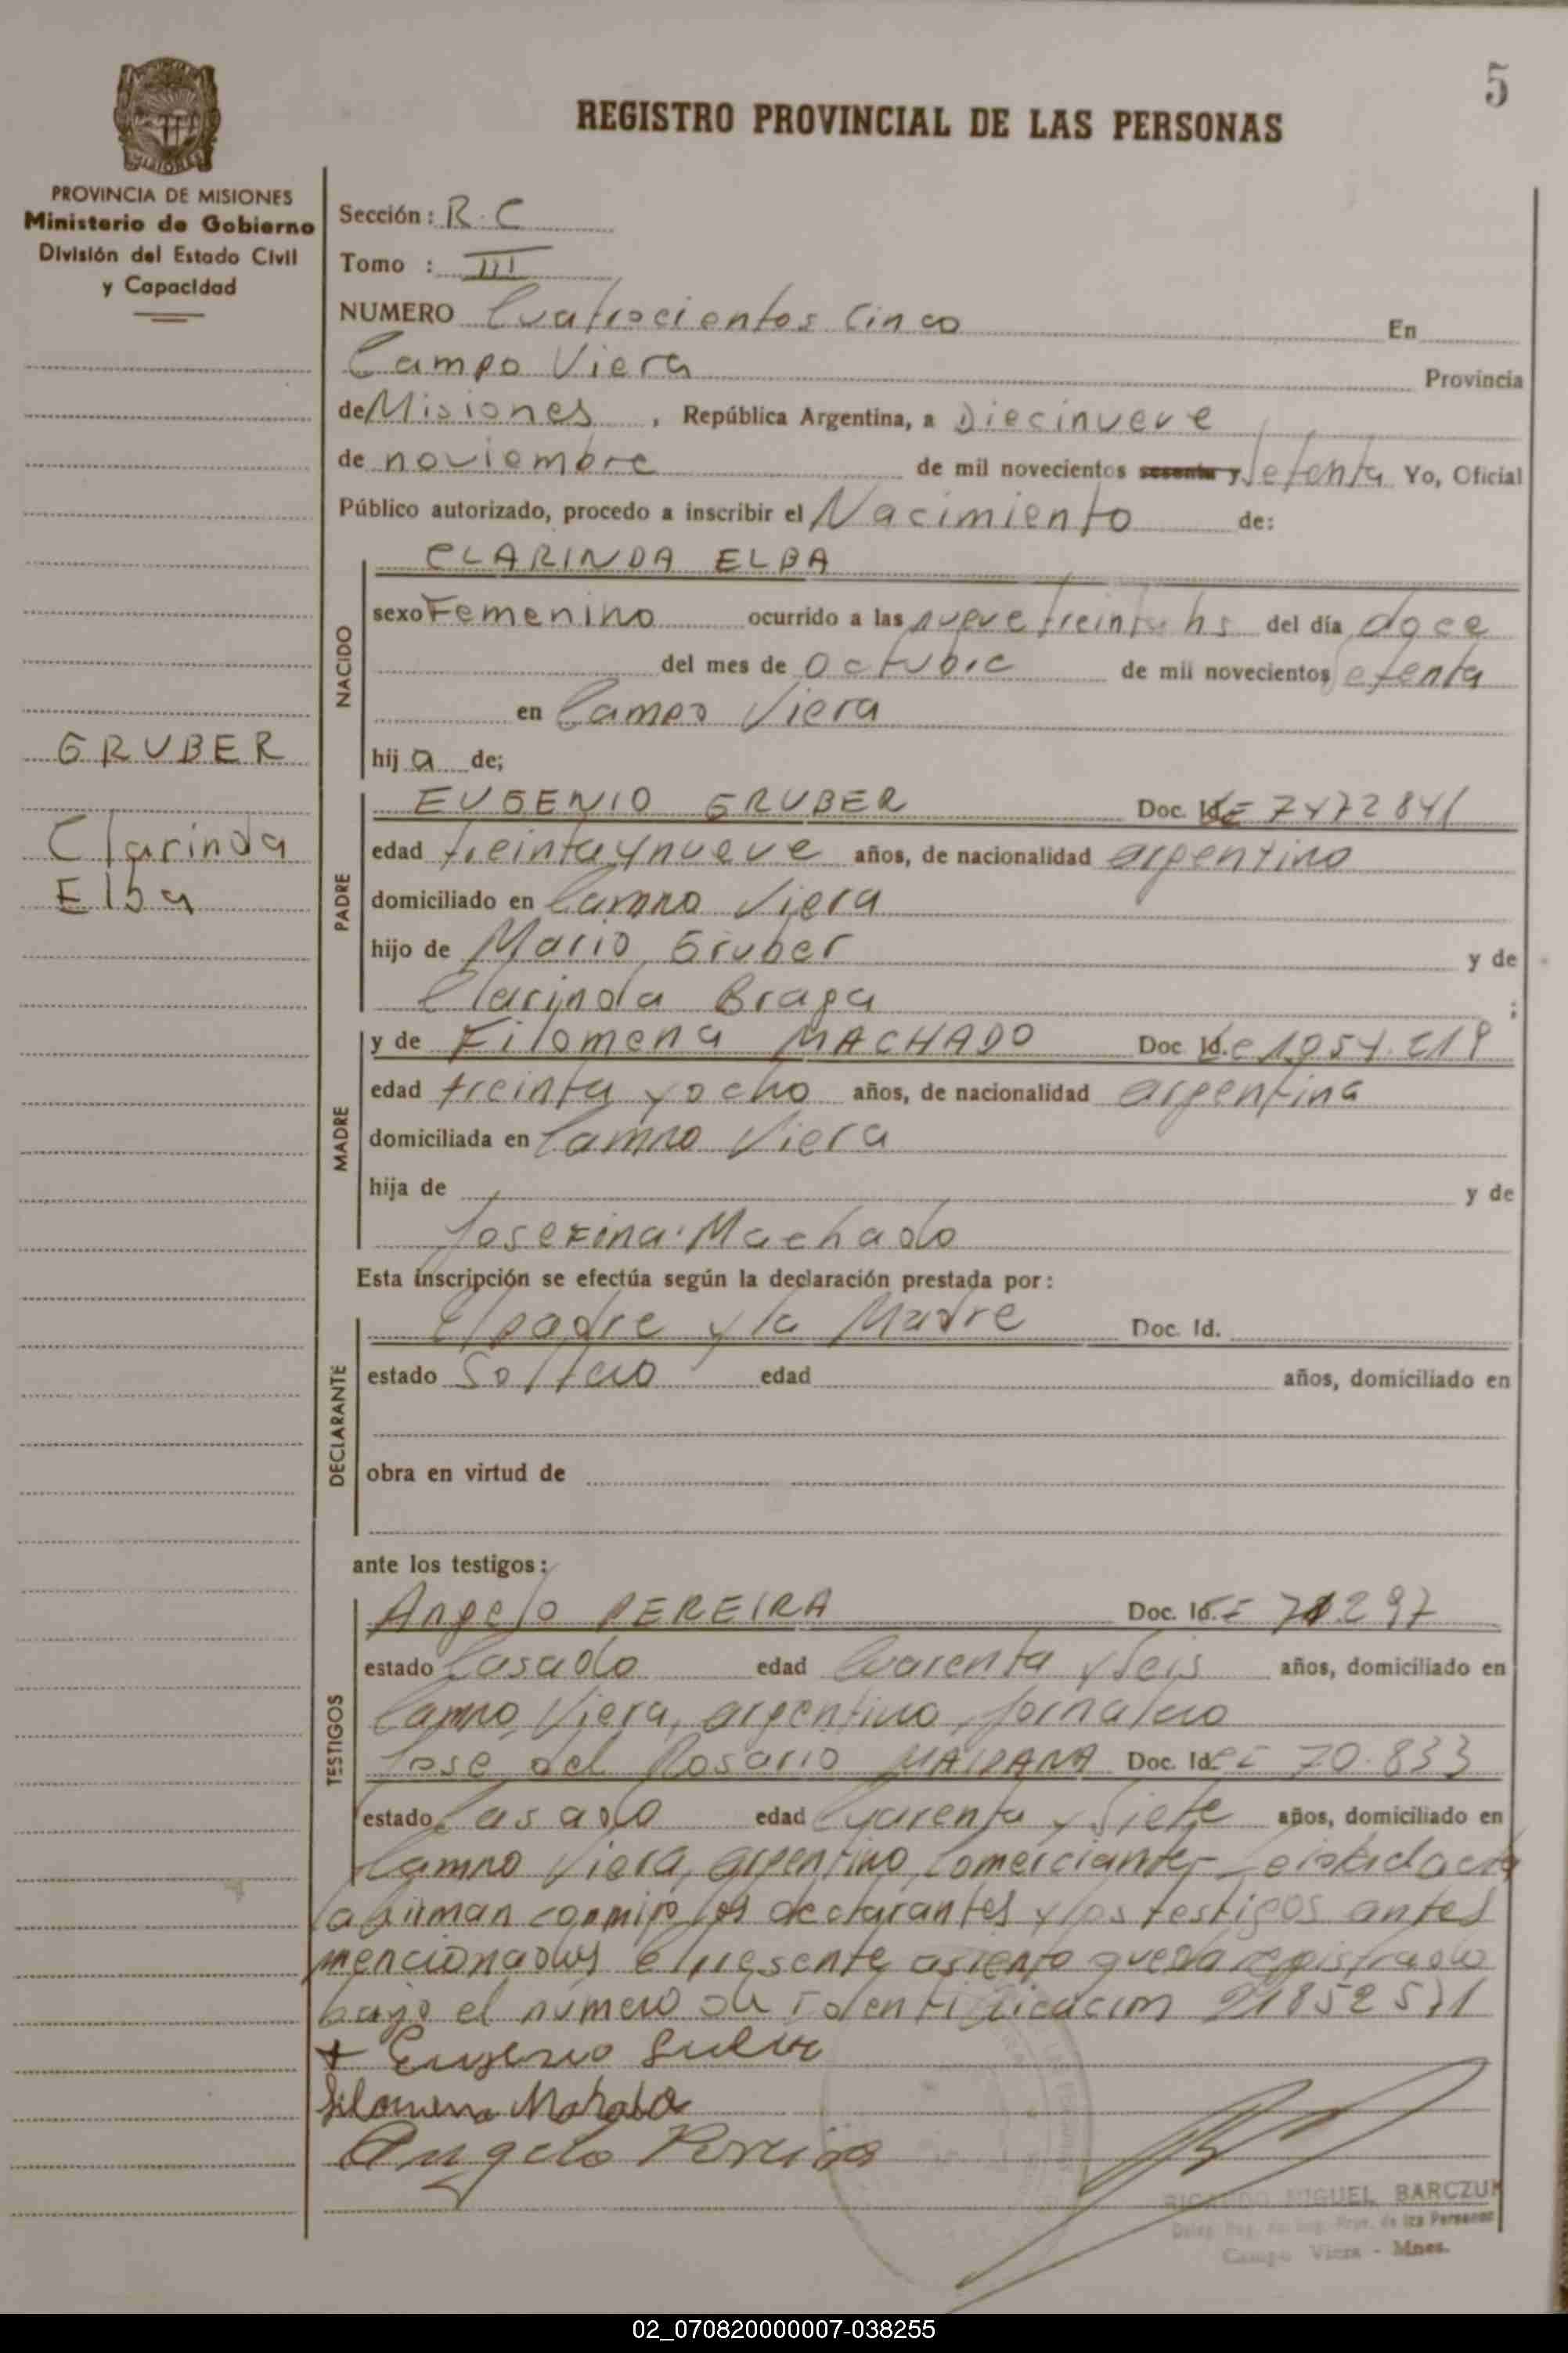 5
REGISTRO PROVINCIAL DE LAS PERSONAS
PROVINCIA DE MISIONES
Ministerio de Gobierno
División del Estado Civil
y Capacidad
GRUBER
Clarinda
Elba
Sección: R.C
Tomo : III
NUMERO Cuatrocientos Cinco En
Campo Viera Provincia
de Misiones, República Argentina, a Diecinueve
de noviembre de mil novecientos sesenta y Setenta Yo, Oficial
Público autorizado, procedo a inscribir el Nacimiento de:
NACIDO
CLARINDA ELBA
sexo Femenino ocurrido a las nueve treinta hs del día doce
del mes de Octubre de mil novecientos Setenta
en Campo Viera
hija de;
PADRE
EUGENIO GRUBER Doc. Id. 7472841
edad treinta y nueve años, de nacionalidad argentino
domiciliado en Campo Viera
hijo de Mario Gruber y de
Clarinda Braga ;
MADRE
y de Filomena MACHADO Doc. Id.
edad treinta y ocho años, de nacionalidad argentina
domiciliada en Campo Viera
hija de y de
Josefina Machado
Esta inscripción se efectúa según la declaración prestada por:
DECLARANTE
El padre y la Madre Doc. Id.
estado Soltero edad años, domiciliado en
obra en virtud de
ante los testigos:
TESTIGOS
Angelo PEREIRA Doc. Id.
estado Casado edad Cuarenta y Seis años, domiciliado en
Campo Viera, argentino, Jornalero
Jose del Rosario MAIDANA Doc. Id. 70.833
estado Casado edad Cuarenta y Siete años, domiciliado en
Campo Viera, argentino, Comerciante, Leida el acta
la firman conmigo los declarantes y los testigos antes
mencionados el presente asiento queda registrado
bajo el número de identificacion 21852571
+ Eugenio Gruber
Filomena Mahado
Angelo Pereira
RICARDO MIGUEL BARCZUK
de las Personas
Campo Viera - Mnes.
02_070820000007-038255